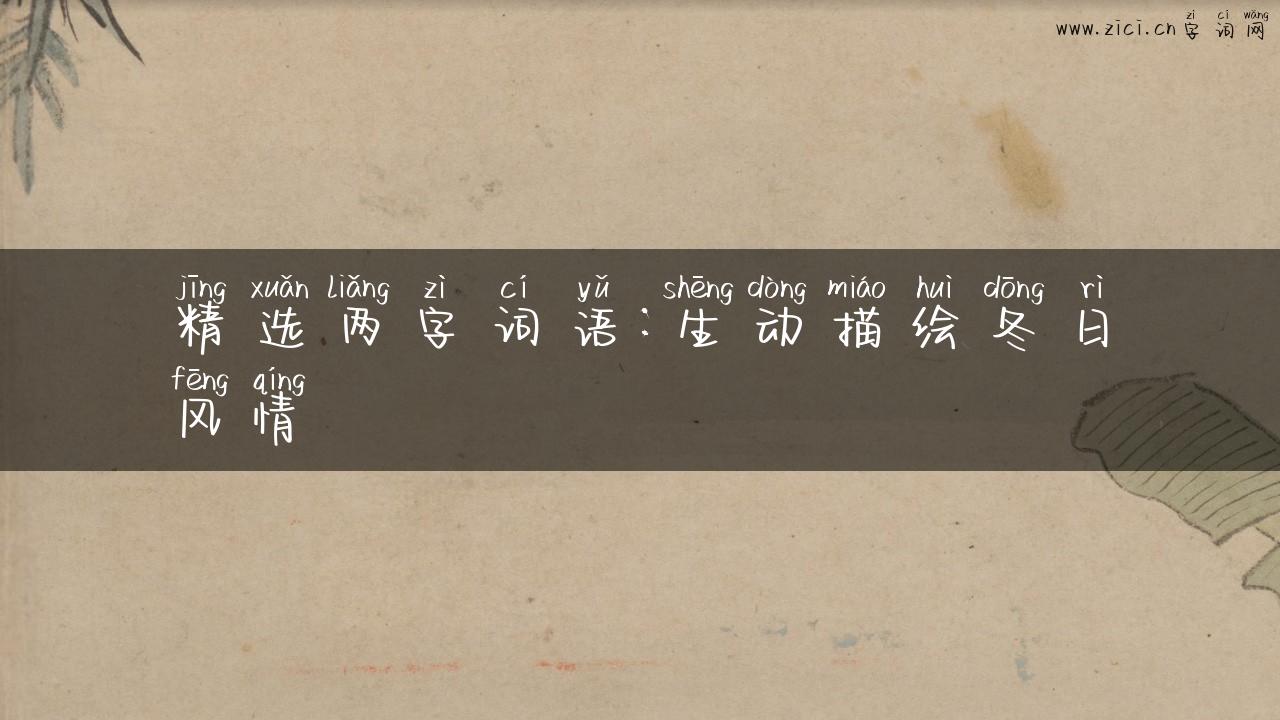 zì cí wǎng
www.zici.cn 字 词 网
jīng xuǎn liǎng zì cí yǔ shēng dòng miáo huì dōng rì
精 选 两 字 词 语 : 生 动 描 绘 冬 日
fēng qíng
风 情